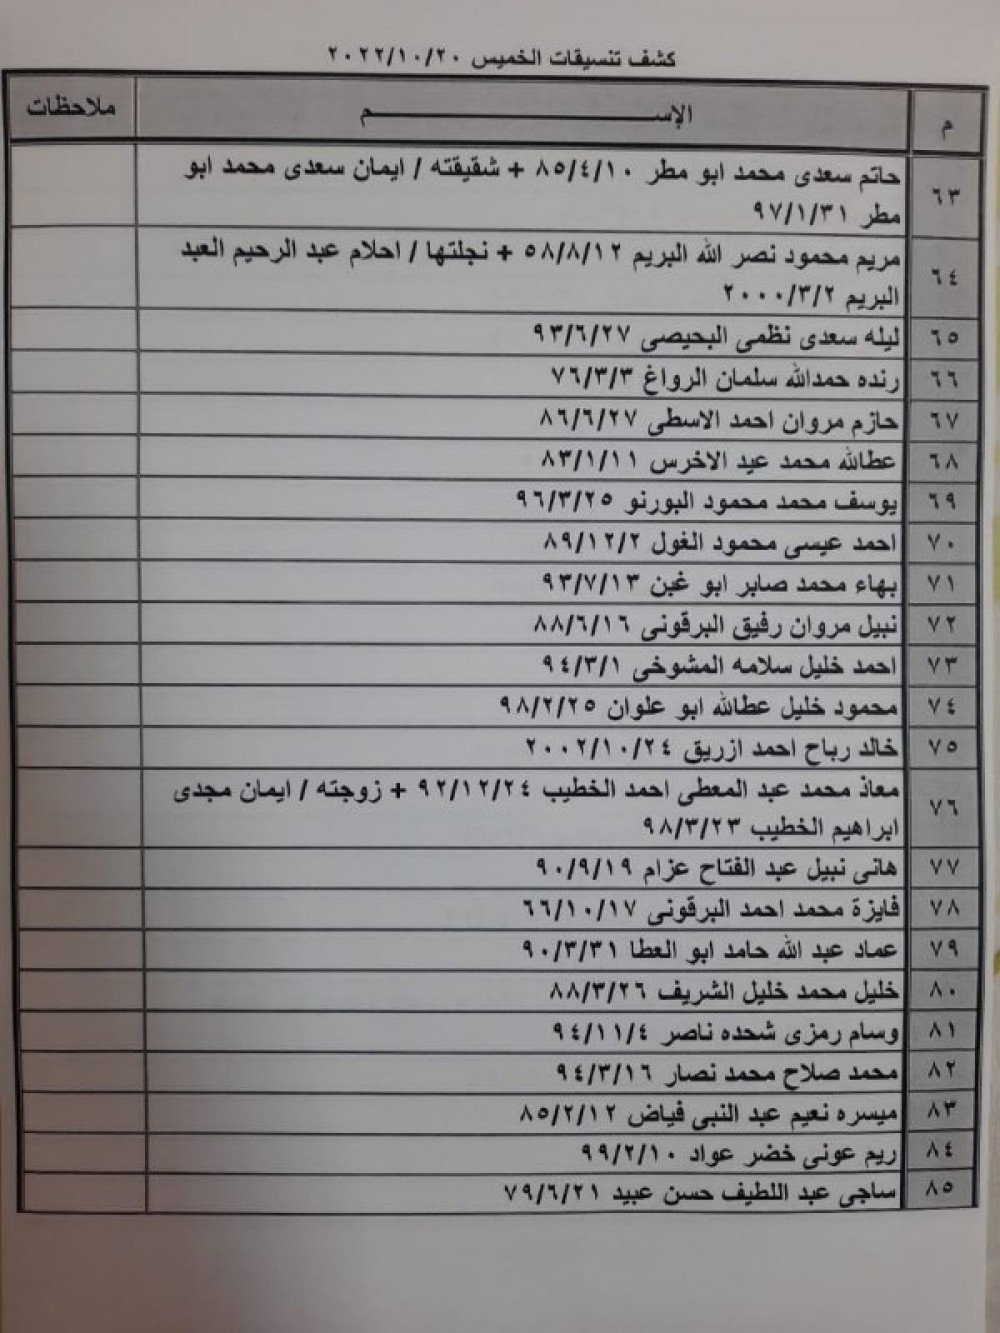 كشف تنسيقات الخميس ٢٠٢٢/١٠/٢٠
م الإســـــــــــم ملاحظات
٦٣ حاتم سعدى محمد ابو مطر ٨٥/٤/١٠ + شقيقته / ايمان سعدى محمد ابو
مطر ٩٧/١/٣١
٦٤ مريم محمود نصر الله البريم ٥٨/٨/١٢ + نجلتها / احلام عبد الرحيم العبد
البريم ٢٠٠٠/٣/٢
٦٥ ليله سعدى نظمى البحيصى ٩٣/٦/٢٧
٦٦ رنده حمدالله سلمان الرواغ ٧٦/٣/٣
٦٧ حازم مروان احمد الاسطى ٨٦/٦/٢٧
٦٨ عطالله محمد عيد الاخرس ٨٣/١/١١
٦٩ يوسف محمد محمود البورنو ٩٦/٣/٢٥
٧٠ احمد عيسى محمود الغول ٨٩/١٢/٢
٧١ بهاء محمد صابر ابو غبن ٩٣/٧/١٣
٧٢ نبيل مروان رفيق البرقونى ٨٨/٦/١٦
٧٣ احمد خليل سلامه المشوخى ٩٤/٣/١
٧٤ محمود خليل عطالله ابو علوان ٩٨/٢/٢٥
٧٥ خالد رباح احمد ازريق ٢٠٠٢/١٠/٢٤
٧٦ معاذ محمد عبد المعطى احمد الخطيب ٩٢/١٢/٢٤ + زوجته / ايمان مجدى
ابراهيم الخطيب ٩٨/٣/٢٣
٧٧ هانى نبيل عبد الفتاح عزام ٩٠/٩/١٩
٧٨ فايزة محمد احمد البرقونى ٦٦/١٠/١٧
٧٩ عماد عبد الله حامد ابو العطا ٩٠/٣/٣١
٨٠ خليل محمد خليل الشريف ٨٨/٣/٢٦
٨١ وسام رمزى شحده ناصر ٩٤/١١/٤
٨٢ محمد صلاح محمد نصار ٩٤/٣/١٦
٨٣ ميسره نعيم عبد النبى فياض ٨٥/٢/١٢
٨٤ ريم عونى خضر عواد ٩٩/٢/١٠
٨٥ ساجى عبد اللطيف حسن عبيد ٧٩/٦/٢١